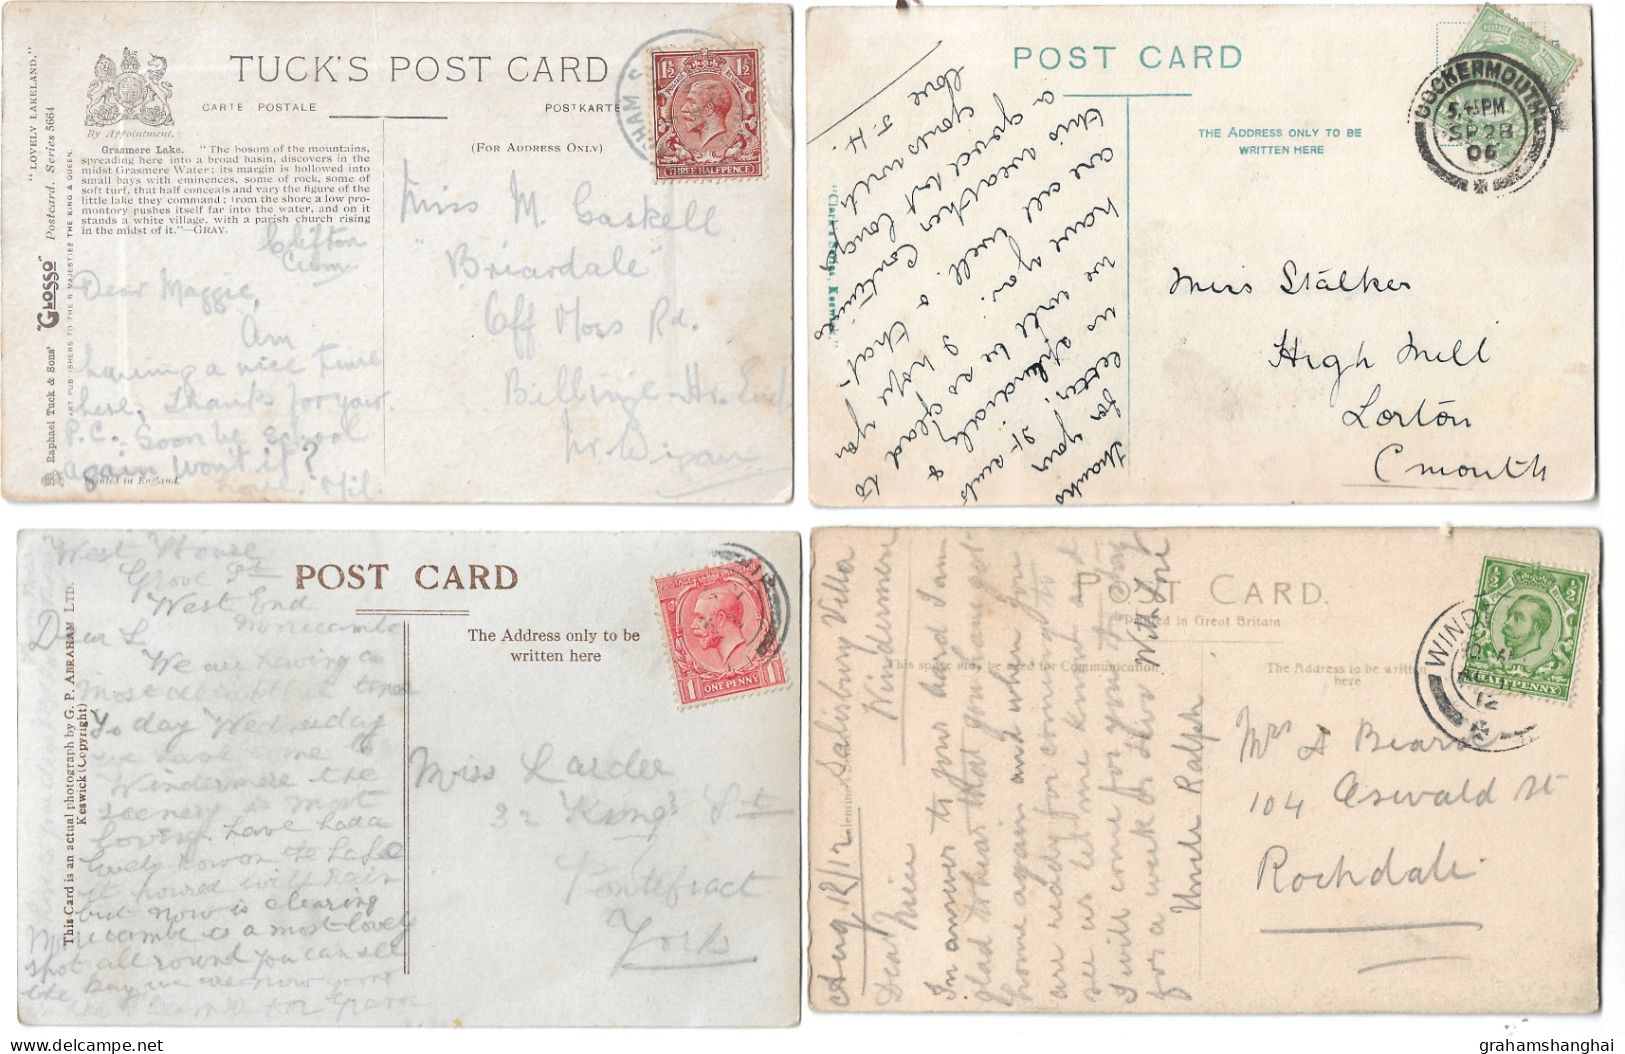 TUCK'S POST CARD
CARTE POSTALE POSTKARTE
(FOR ADDRESS ONLY)
By Appointment.
"LOVELY LAKELAND."
Postcard. Series 5664
"GLOSSO"
Raphael Tuck & Sons'
ART PUBLISHERS TO THEIR MAJESTIES THE KING & QUEEN.
Grasmere Lake. "The bosom of the mountains,
spreading here into a broad basin, discovers in the
midst Grasmere Water; its margin is hollowed into
small bays with eminences, some of rock, some of
soft turf, that half conceals and vary the figure of the
little lake they command; from the shore a low pro-
montory pushes itself far into the water, and on it
stands a white village, with a parish church rising
in the midst of it."—GRAY.
Clifton
Dear Maggie,
Am
having a nice time
here, Thanks for your
P.C. Soon be school
again won't it?
Printed in England.
Miss M. Gaskell
"Briardale"
Off Moss Rd.
Billinge Hr. End
Nr Wigan
1½ 1½
THREE HALFPENCE
POST CARD
THE ADDRESS ONLY TO BE
WRITTEN HERE
thanks for your
letter.
we will be so glad to
have you. I hope you
are all well
this weather continues
a good lot
yours with
love J.H.
COCKERMOUTH
5.45PM
SP 28
06
Miss Stalker
High Mill
Lorton
C mouth
POST CARD
The Address only to be
written here
This Card is an actual photograph by G. P. ABRAHAM LTD.
Keswick (Copyright)
West House
Grove St
West End
Morecambe
Dear L.
We are having a
most delightful time
To day Wednesday
we have come to
Windermere the
scenery is most
lovely. have had a
lovely
it poured with rain
but now is clearing
Morecambe is a most lovely
spot all round you can see
the bay we are now going
Miss Larder
32 King's St
Pontefract
Yorks
1 1
ONE PENNY
POST CARD.
Printed in Great Britain
This space may be used for Communication.
The Address to be written
here
Salisbury Villa
Windermere
Aug 12/12
Dear
In answer to your card I am
glad to hear that you have got
home again and when you
are ready for coming to
see us let me know and
I will come for you to stay
for a week or two
With Love
Uncle Ralph
WIND
12
½ ½
HALFPENNY
Mrs A Beard
104 Oswald St
Rochdale
grahamshanghai